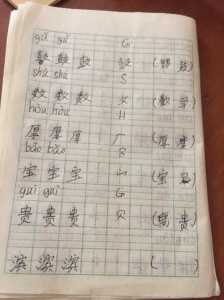 gǔ gǔ G
鼓 鼓 鼓 鼓 ( 鼓)
shù shù S
数 数 数 女 (数学)
hòu hòu H
厚 厚 厚 厂 (厚)
bǎo bǎo B
宝 宝 宝 宀 (宝)
guì guì G
贵 贵 贵 贝 (富贵)
滨 滨 滨 ( )